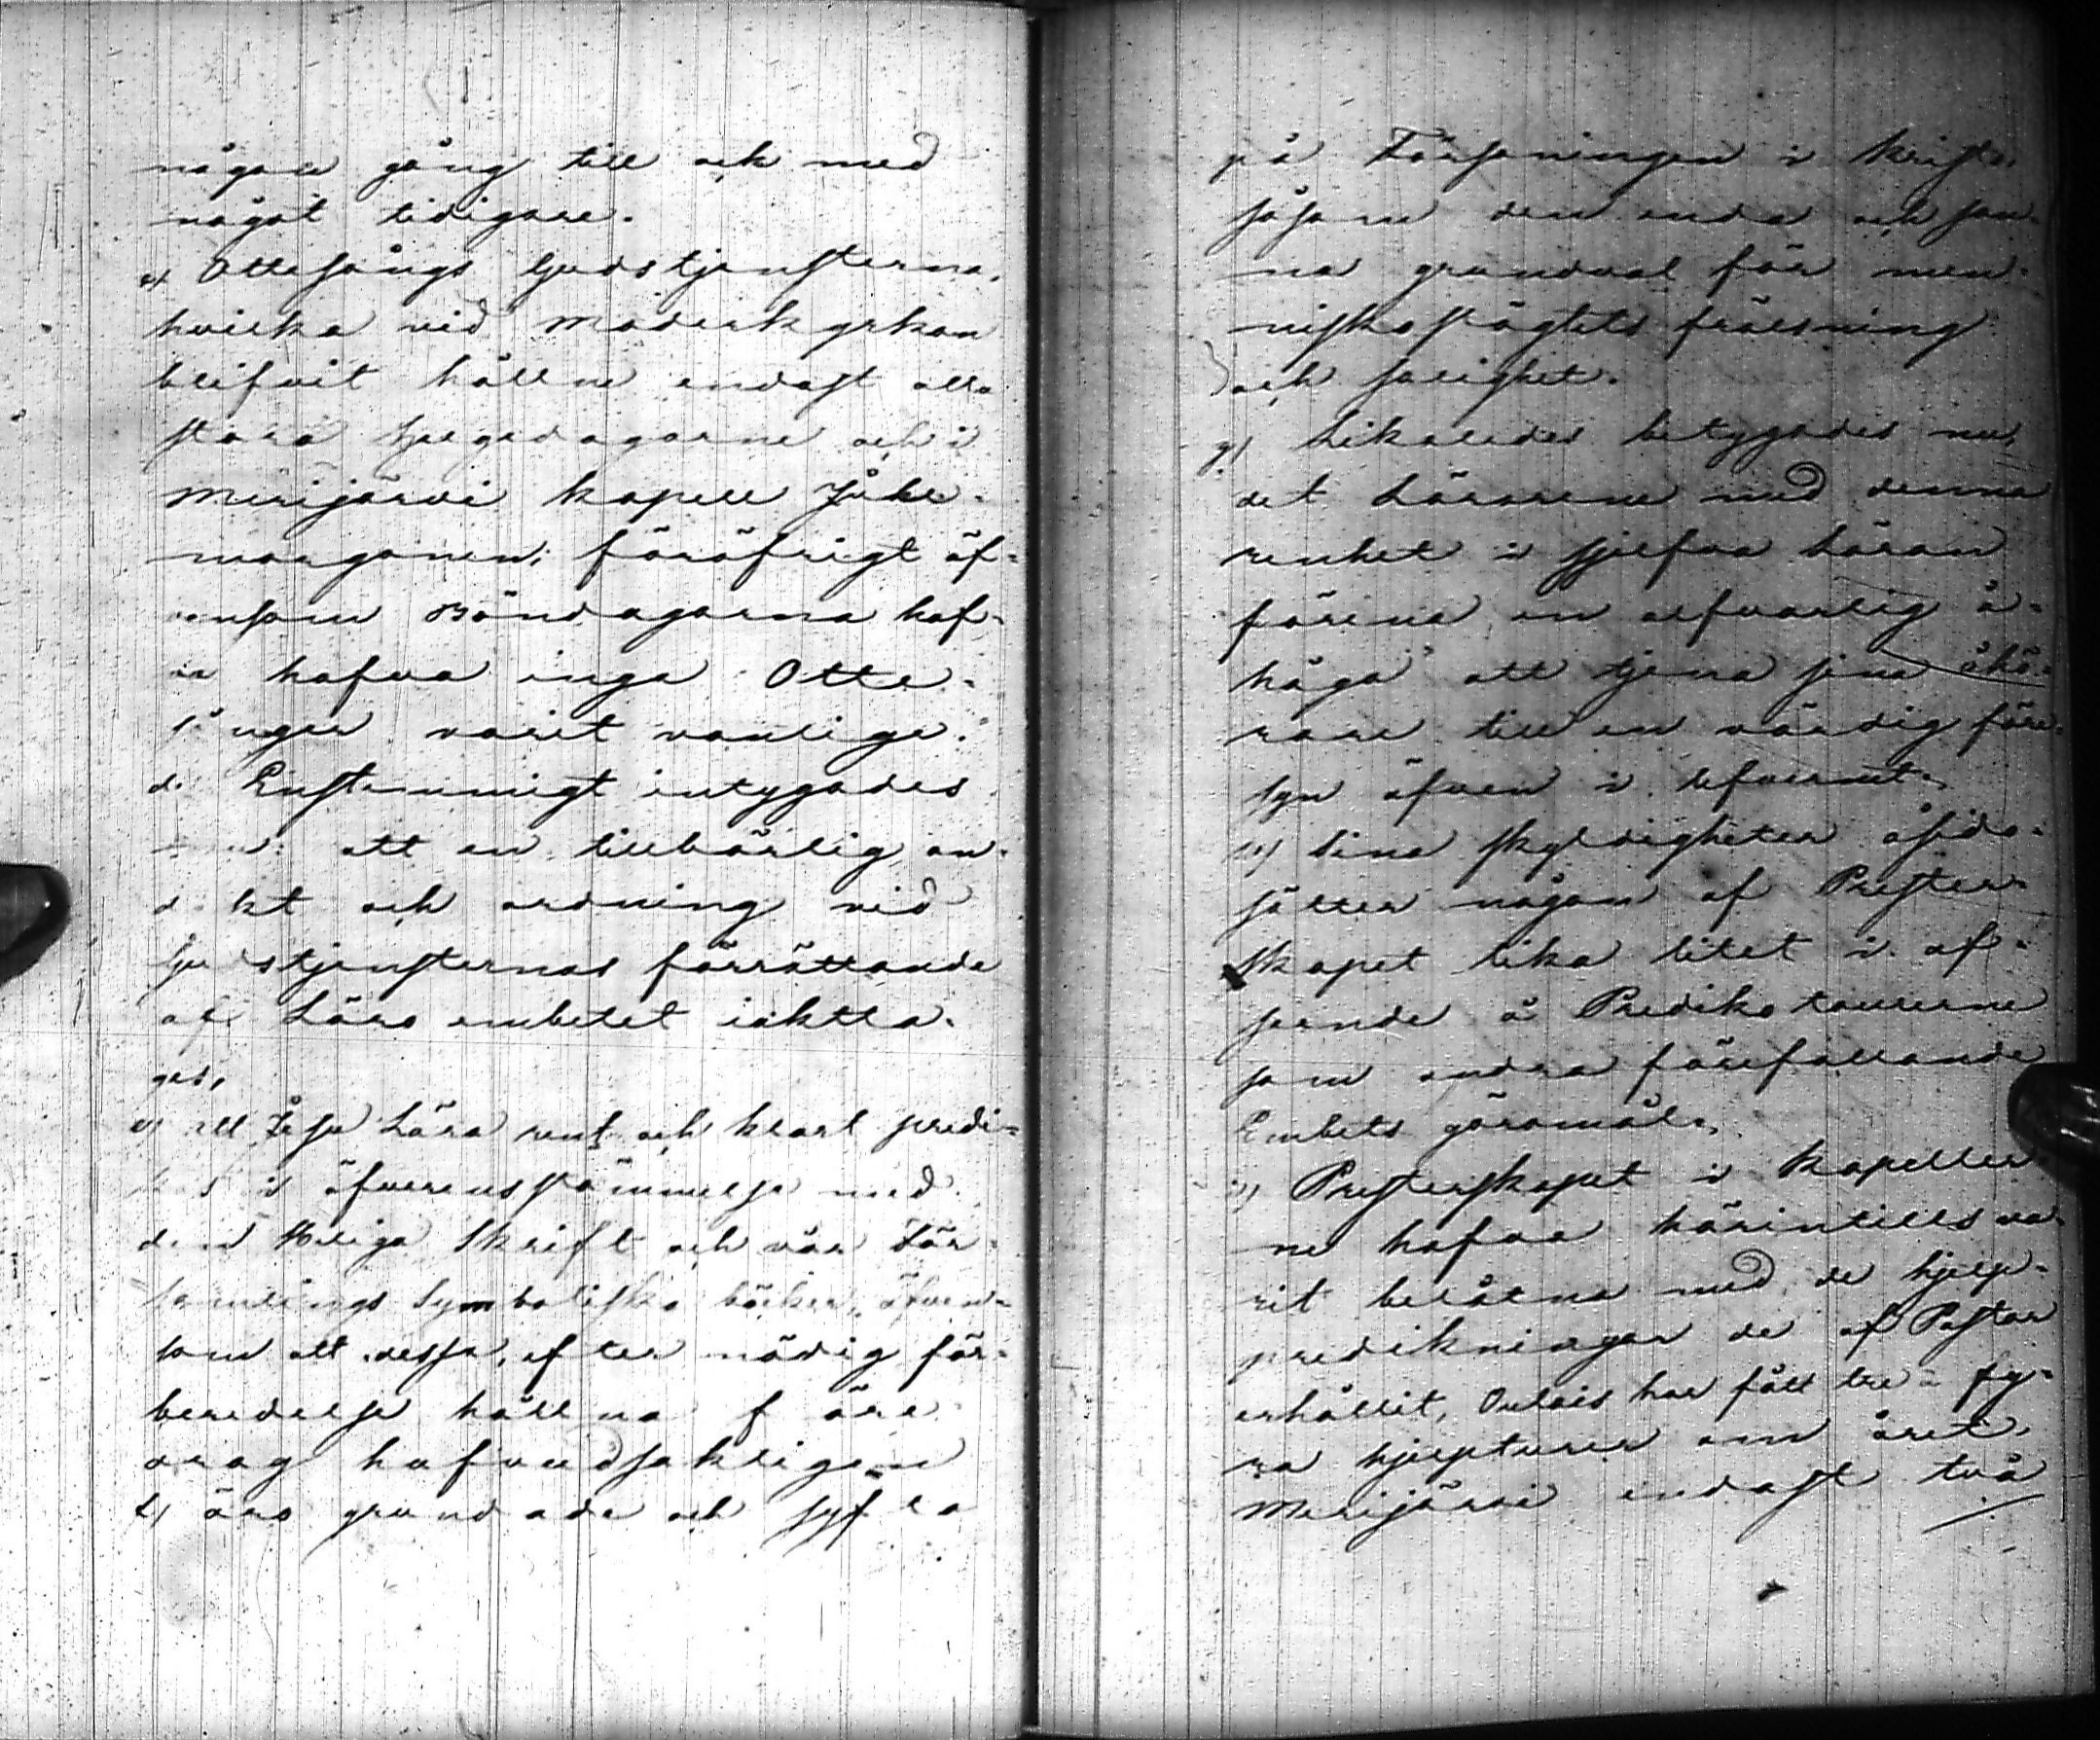 någon gång till och med
något tidigare.
c) Ottesångs Gudstjensterna,
hvilka vid Moderkyrkan
blifvit hållne endast alla
stora Helgedagarne och i
Merijärvi kapell Jule-
morgonen; föröfrigt äf-
vensom Böndagarna haf-
va hafva inga Otte-
sånger varit vanliga.
d. Enstemmigt intygades
att en tillbörlig an-
dakt och ordning vid
Gudstjensternas förrättande
af Läro embetet iaktta-
ges,
e) att Jesu Lära rent och klart predi-
kas i öfverensstämmelse med
den Heliga Skrift och vår För-
samlings Symboliska böcker, äfven-
som att dessa, efter nödig för-
beredelse hållna före
drag hufvudsakligen
f) äro grundade och syfta
på Försoningen i Kristo,
såsom den enda och san-
na grundval för men-
niskoslägtets frälsning
och salighet.
g) Likaledes betygades nu,
det Lärarene med denna
renhet i sjelfva Läran
förena en alfvarlig å-
håga att tjena sina åhö-
rare till en värdig före-
syn äfven i lefvernet.
h) Sina skyldigheter åsido-
sätter någon af Prester-
skapet lika litet i af-
seende å Predikoturerne
som andra förefallande
Embets göromål.
i) Presterskapet i Kapeller-
ne hafva härintills va-
rit belåtna med de hjelp-
predikningar de af Pastor
erhållit, Oulais har fått tre à fy-
ra hjelpturer om året,
Merijärvi endast två
./.